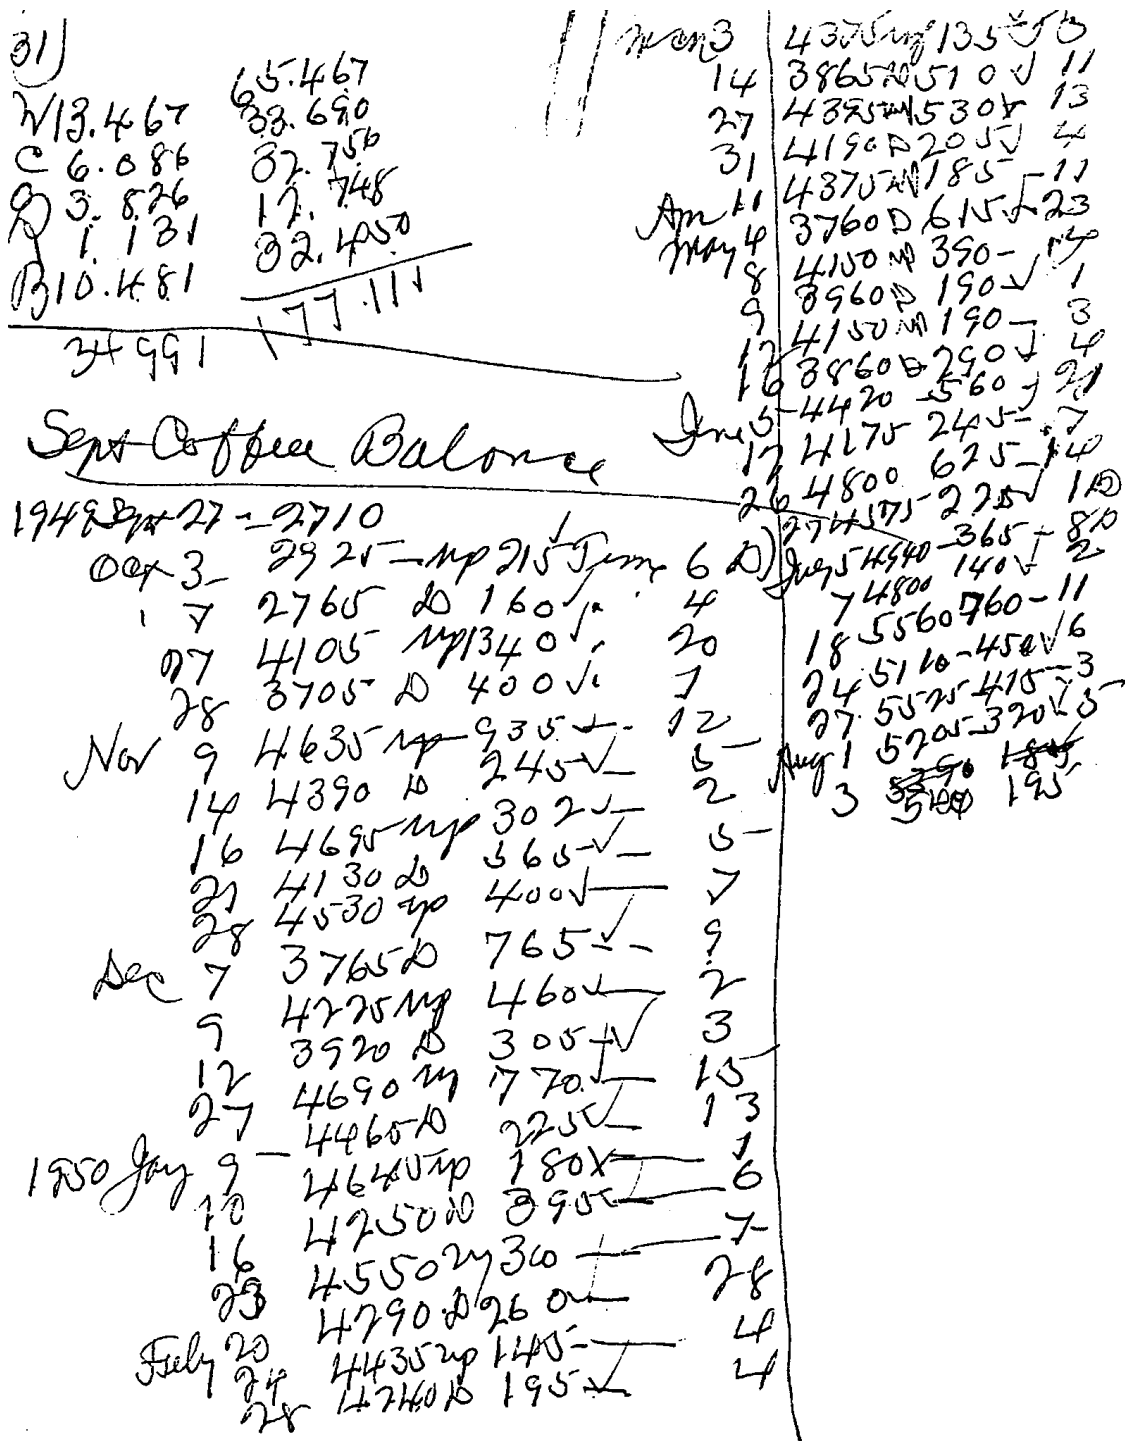 31)
W 13.467 65.467
C 6.086 33.690
O 3.826 32.756
D 1.131 12.748
B 10.481 32.450
34991 177.111
Sept Coffee Balance
1949 Sept 27 - 2710
Oct 3 - 2925 - up 215 √ Time 6 D)
" 7 2765 D 160 √ " 4
27 4105 up 1340 √ " 20
28 3705 D 400 √ " 1
Nov 9 4635 up 935 √ - 12
14 4390 D 245 √ - 5
16 4695 up 302 √ - 2
21 4130 D 565 √ - 5
28 4530 up 400 √ - 7
Dec 7 3765 D 765 √ - 9
9 4225 up 460 √ - 2
12 3920 D 305 √ 3
27 4690 up 770 √ - 15
1950 Jay 9 - 4465 D 225 √ - 13
10 4645 up 180 X - 1
16 4250 D 395 √ - 6
23 4550 up 300 - 7
Feby 20 4290 D 260 - 28
24 4435 up 145 - 4
28 4240 D 195 √ - 4
3 4375 up 135 √ 3
14 3865 D 510 √ 11
27 4395 up 530 √ 13
31 4190 D 205 √ 4
Apr 11 4375 up 185 - 11
May 4 3760 D 615 √ - 23
8 4150 up 390 - 4
9 3960 D 190 √ 1
12 4150 up 190 - 3
16 3860 D 290 √ 4
June 5 - 4420 - 560 √ 21
12 4175 245 - 7
26 4800 625 - 14
27 4575 - 225 √ 1 D
July 5 4940 - 365 - 8 D
7 4800 140 √ 2
18 5560 760 - 11
24 5110 - 450 √ 6
27 5525 415 - 3
Aug 1 5205 - 320 √ 5
3 5390 185
5400 195